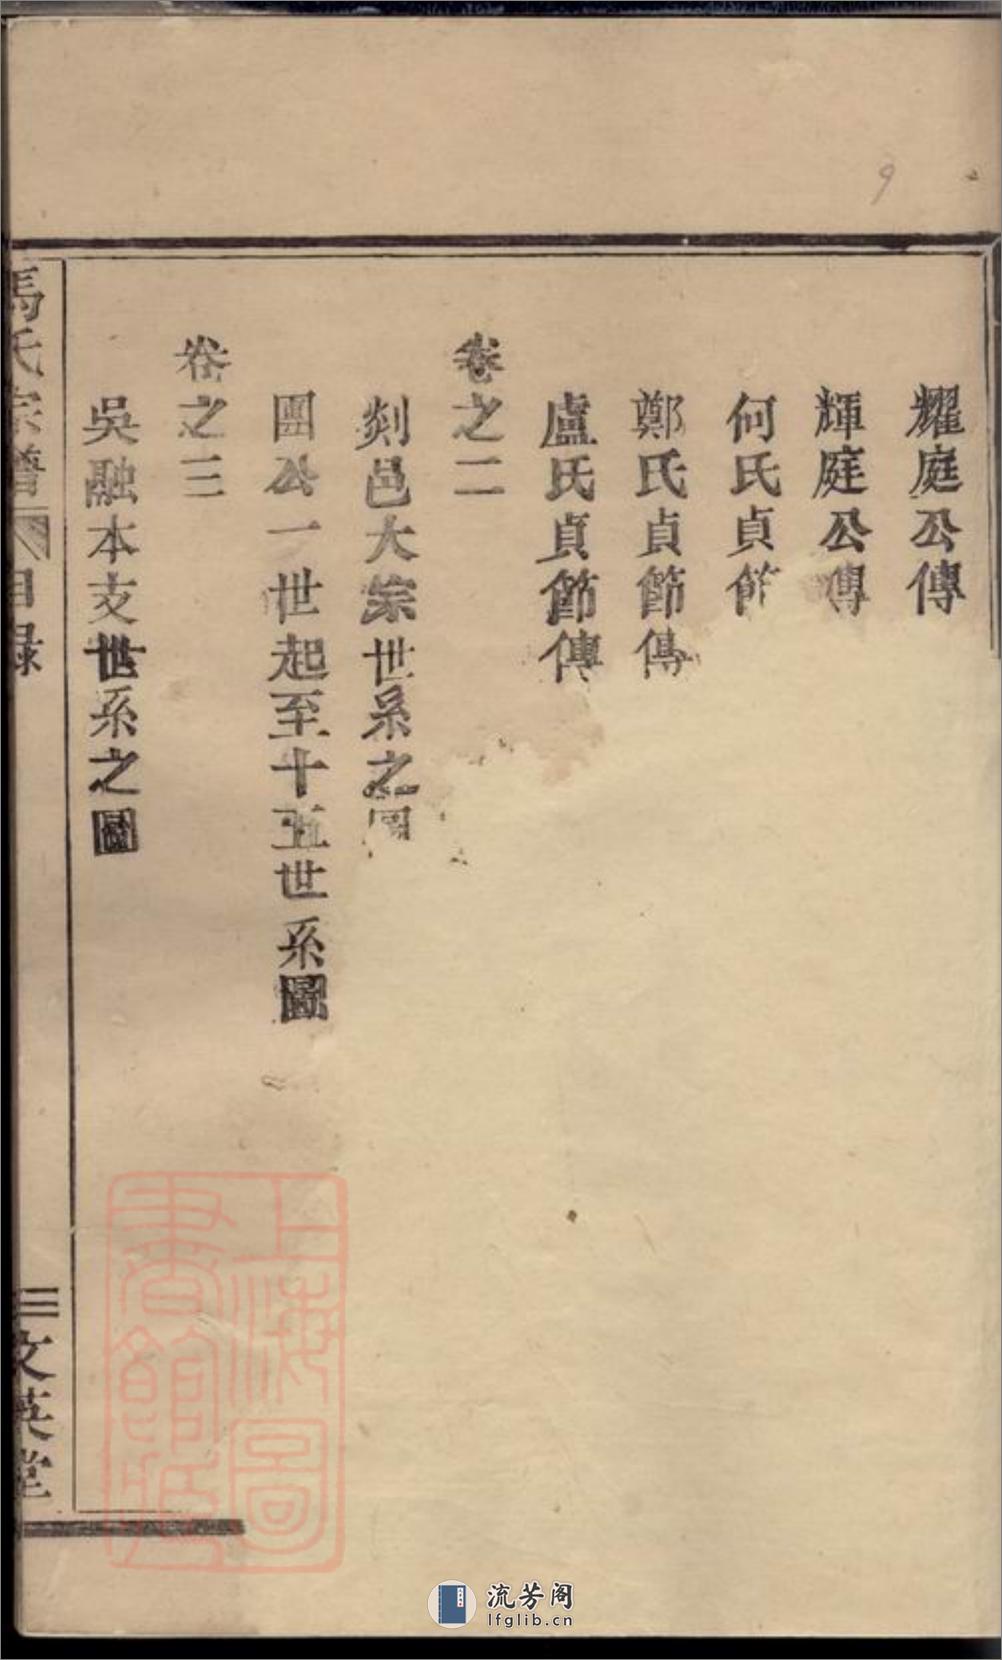 耀庭公傳
輝庭公傳
何氏貞節
鄭氏貞節傳
盧氏貞節傳
卷之二
剡邑大宗世系之圖
團公一世起至十五世系圖
卷之三
吳融本支世系之圖
馬氏宗譜 目錄 三 文英堂
9
上海圖書館藏
流芳阁
lfglib.cn